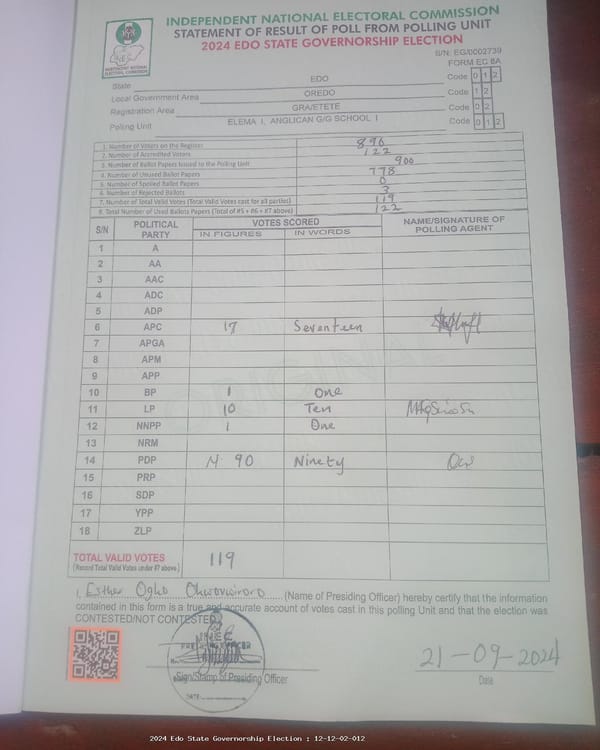 INDEPENDENT NATIONAL ELECTORAL COMMISSION
STATEMENT OF RESULT OF POLL FROM POLLING UNIT
2024 EDO STATE GOVERNORSHIP ELECTION
S/N: EG/0002739
FORM EC 8A
INEC
INDEPENDENT NATIONAL ELECTORAL COMMISSION
State EDO Code 0 1 2
Local Government Area OREDO Code 1 2
Registration Area GRA/ETETE Code 0 2
Polling Unit ELEMA I, ANGLICAN G/G SCHOOL I Code 0 1 2
1. Number of Voters on the Register 896
2. Number of Accredited Voters 122
3. Number of Ballot Papers Issued to the Polling Unit 900
4. Number of Unused Ballot Papers 778
5. Number of Spoiled Ballot Papers 0
6. Number of Rejected Ballots 3
7. Number of Total Valid Votes (Total Valid Votes cast for all parties) 119
8. Total Number of Used Ballots Papers (Total of #5 + #6 + #7 above) 122
S/N POLITICAL PARTY VOTES SCORED NAME/SIGNATURE OF POLLING AGENT
IN FIGURES IN WORDS
1 A
2 AA
3 AAC
4 ADC
5 ADP
6 APC 17 Seventeen
7 APGA
8 APM
9 APP
10 BP 1 One
11 LP 10 Ten
12 NNPP 1 One
13 NRM
14 PDP 90 Ninety
15 PRP
16 SDP
17 YPP
18 ZLP
TOTAL VALID VOTES 119
(Record Total Valid Votes under #7 above)
I, Esther Ogho (Name of Presiding Officer) hereby certify that the information
contained in this form is a true and accurate account of votes cast in this polling Unit and that the election was
CONTESTED/NOT CONTESTED
INEC
PRESIDING OFFICER
Sign/Stamp of Presiding Officer
DATE
21-09-2024
Date
2024 Edo State Governorship Election : 12-12-02-012